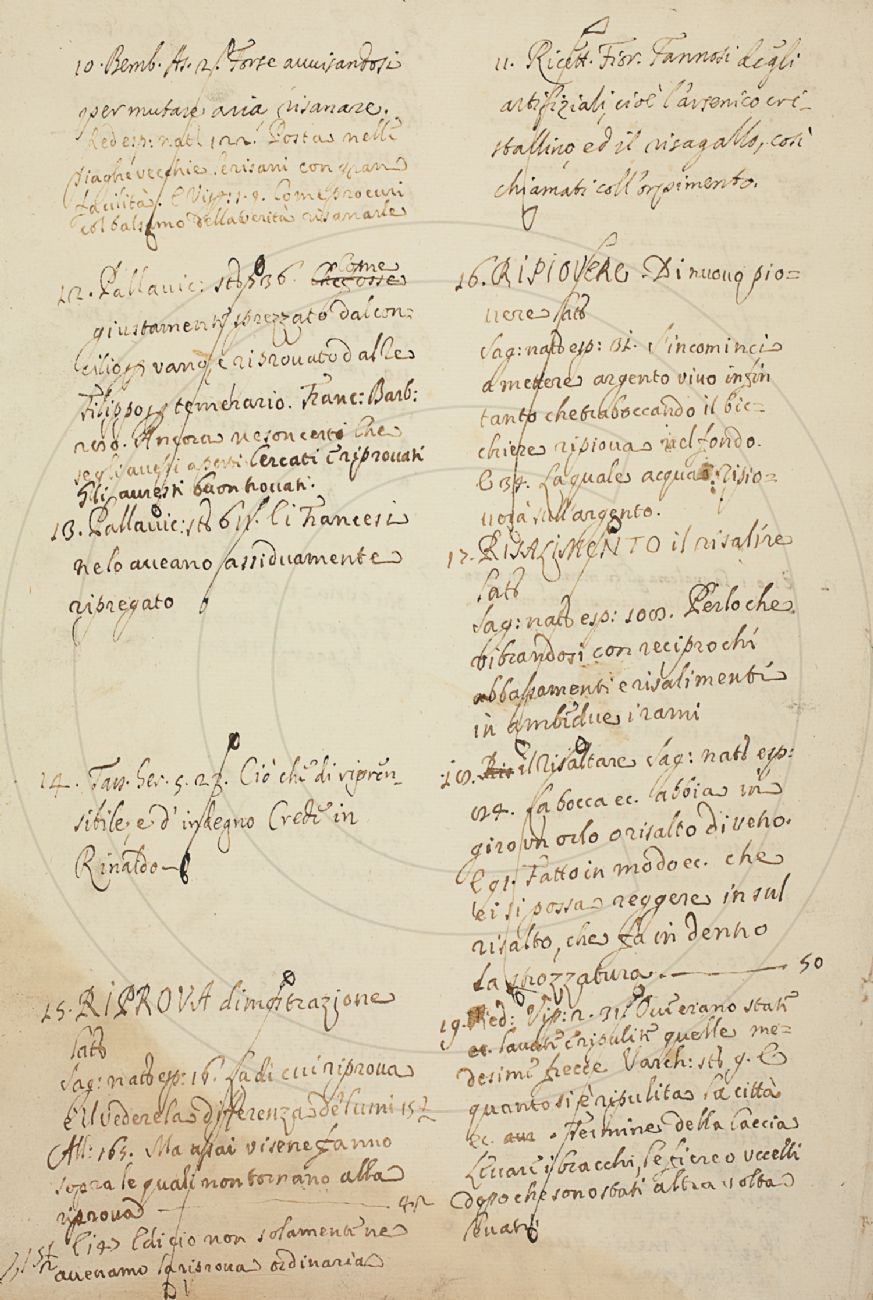 10. Bemb. As. 2. Forse avvisandosi
per mutare aria risanare.
Red esp: nat: 122. Posta nelle
piaghe vecchie le risani con gran
facilità. E Vip: 1. 9. Come procuri
col balsamo della verità risanarle
12. Pallavic: st: 536. Come
Che fosse
giustamente sprezzato dal con:
cilio vano, e risrovato dalle
Filippo temerario. Franc: Barb:
Ancora ne son certi Che
se gli avessi Cercati e riprovati
Gli avresti buon trovati.
13. Pallavic: st: Li Francesi
nelo aveano assiduamente
ripregato
14. Tass. Ger. 5. 23. Ciò che di ripren-
sibile, e d'indegno Crede in
Rinaldo
15. RIPROVA dimostrazione
lat:
Sag: nat: esp: 16. La di cui riprova
è il vedere la differenza de lumi 152
All: 165. Ma assai visene fanno
sopra le quali non tornano alla
riprova 42
E di cio non solamente ne
avevamo la risrova ordinaria
11. Ricett. Fior. Fannosi degli
artifiziali, cioè l'arsenico cri-
stallino, ed il risagallo, così
chiamati coll'orpimento.
16. RIPIOVERE. Di nuovo pio-
vere lat:
Sag: nat: esp: 31. S'incominci
a mettere argento vivo infin
tanto che traboccando il bic-
chiere ripiova nel fondo.
E 34. La quale acqua ripio-
verà sull'argento.
17. RISALIMENTO il risalire
lat:
Sag: nat: esp: 100. Perloche
vibrandosi con reciprochi
abbassamenti e risalimenti
in ambidue i rami
18. il risaltare Sag: nat: esp:
24. La bocca ec. abbia in
giro un orlo o risalto di vetro.
E 91. Fatto in modo ec. che
ei si possa reggere in sul
risalto, che fa in dentro
La strozzatura 50
19. Red: Vip: 2. 31. Ove erano state
lavate e ripulite quelle me-
desime frecce Varch: st: 9. E
quanto si è ripulita la città
ec. Termine della Caccia
Levare i bracchi, le fiere o uccelli
dopo che sono stati altra volta
levati